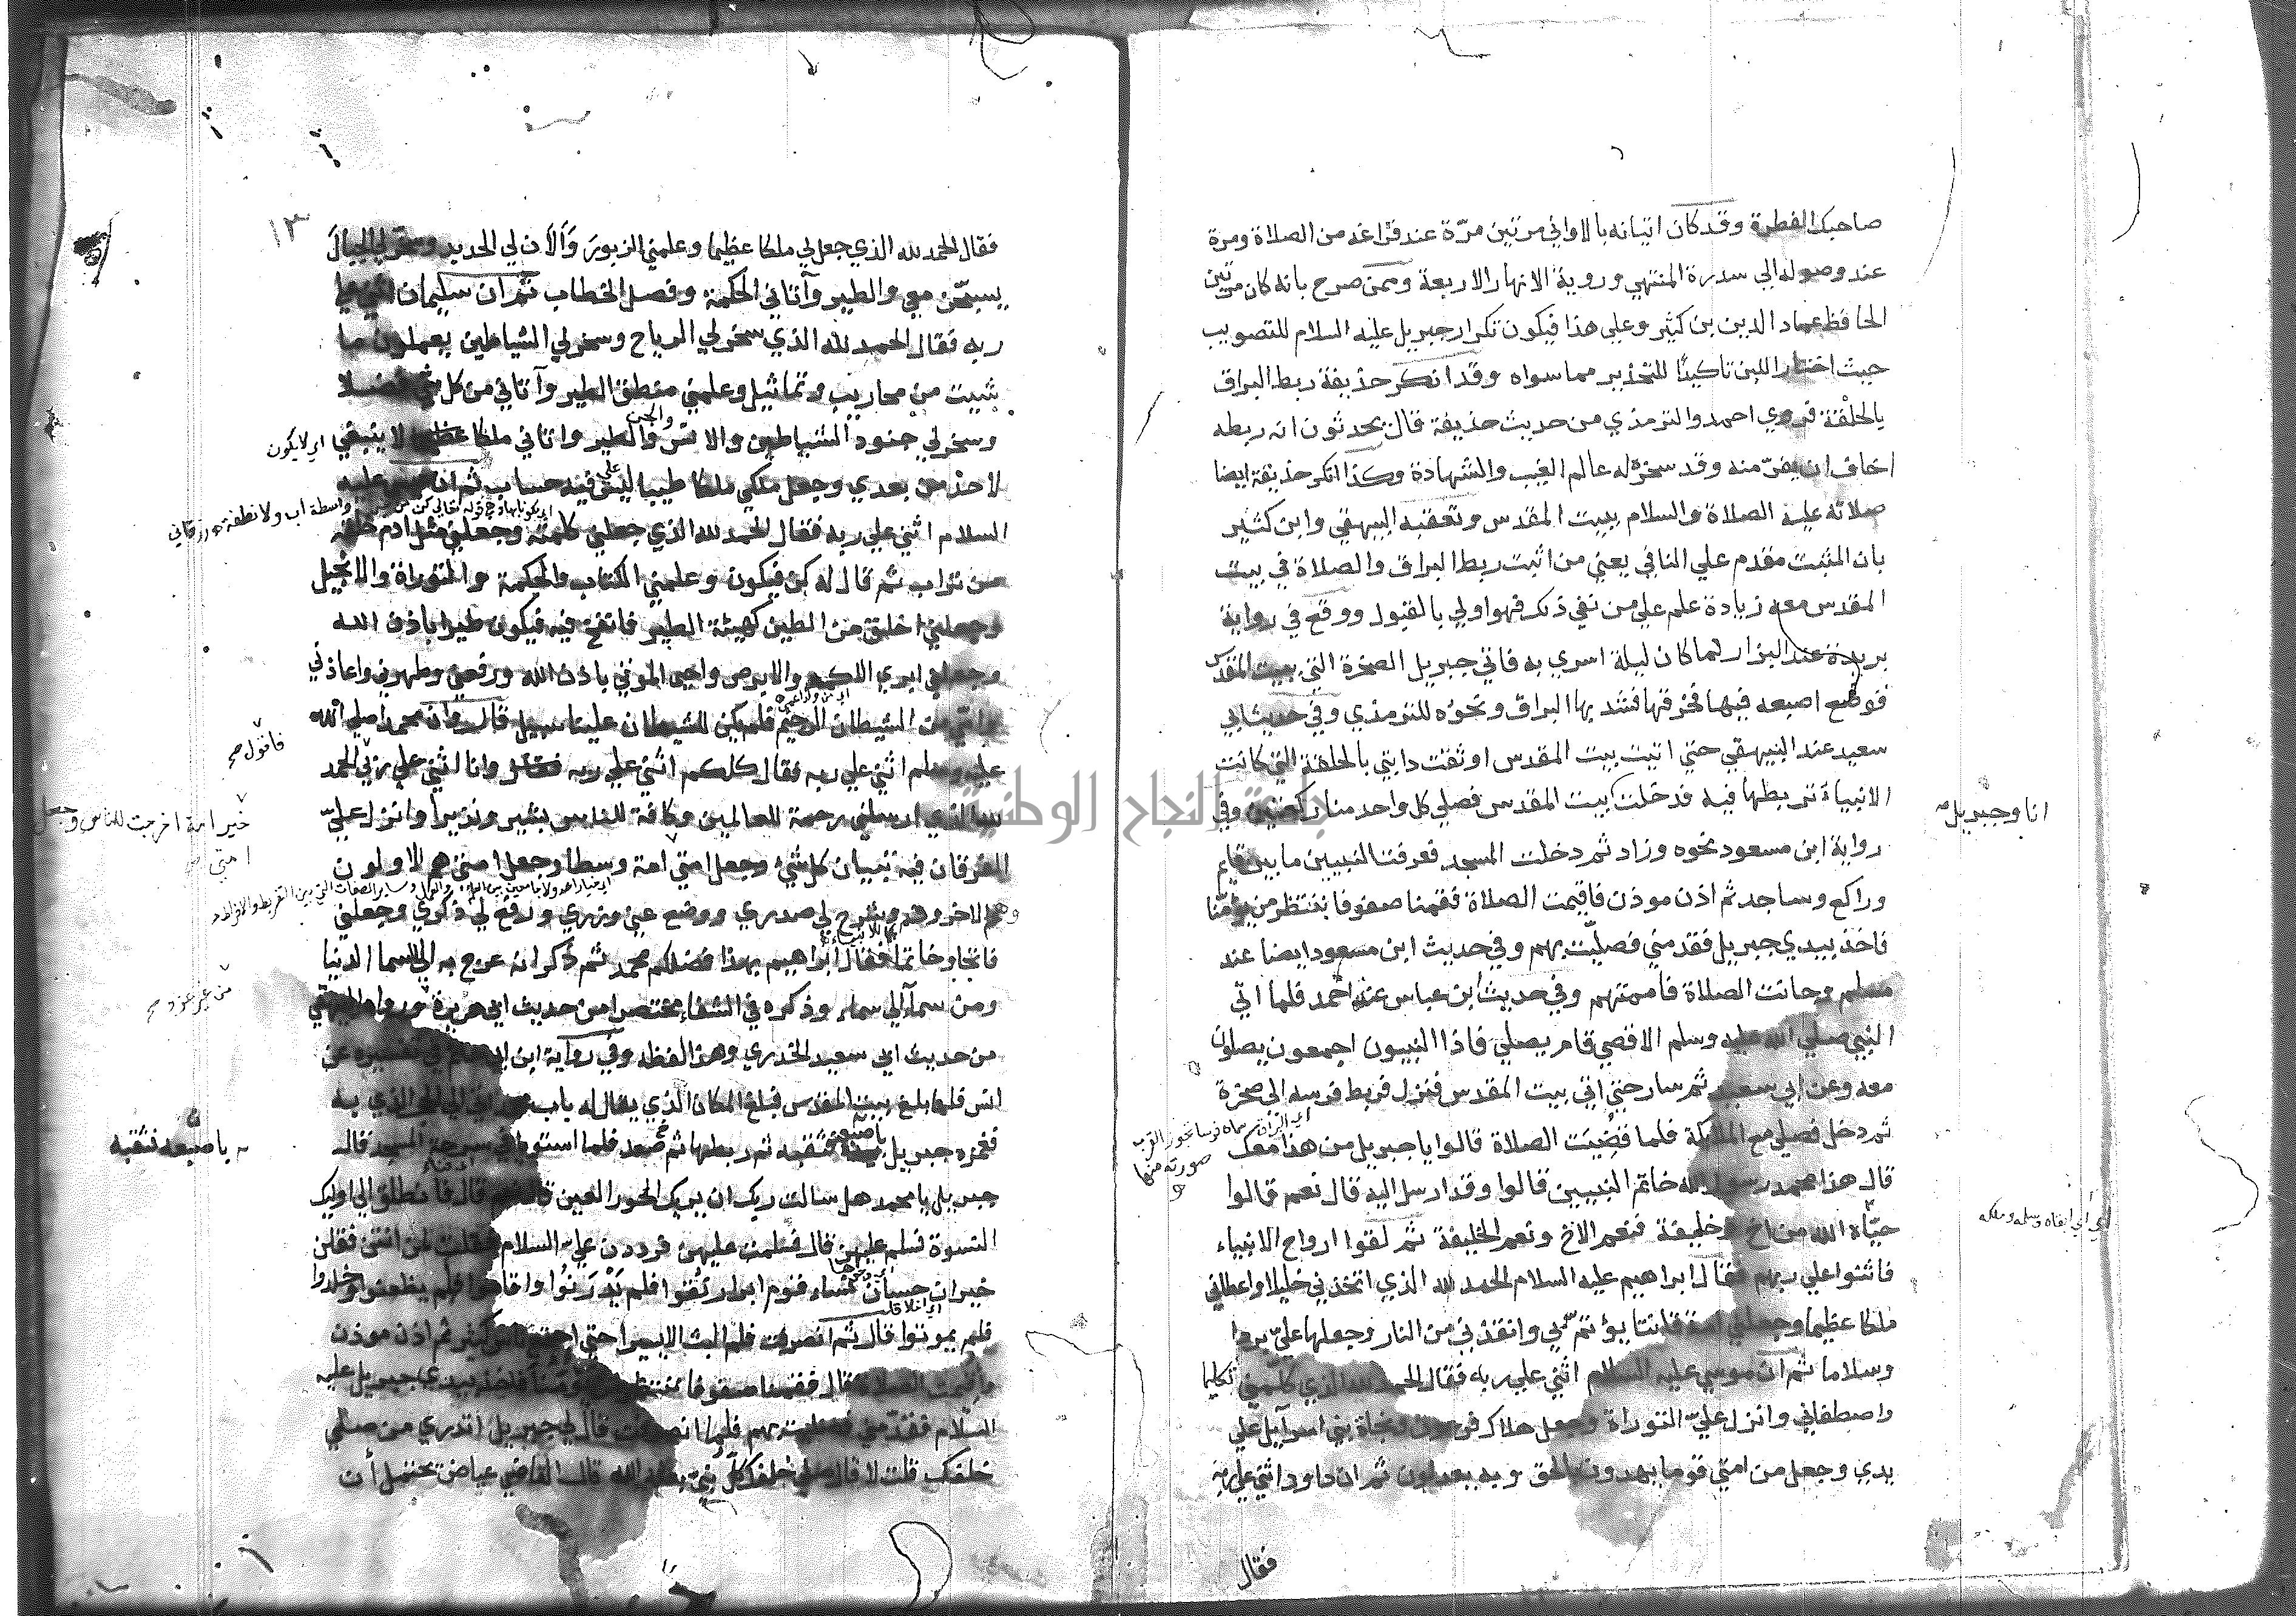 صاحبك الفطرة وقد كان اتيانه بالاواني مرتين مرّة عند فراغه من الصلاة ومرة
عند وصوله الي سدرة المنتهي وروية الانهار الاربعة وممن صرح بانه كان مرتين
الحافظ عماد الدين بن كثير وعلي هذا فيكون تكرار جبريل عليه السلام للتصويب
حيث اختار اللبن تاكيدًا للتحذير مما سواه وقد انكر حذيفة ربط البراق
بالحلقة فروي احمد والترمذي من حديث حذيفة قال يحدثون انه ربطه
اخاف ان يفرّ منه وقد سخره له عالم الغيب والشهادة وكذا انكر حذيفة ايضا
صلاته عليه الصلاة والسلام ببيت المقدس وتعقبه البيهقي وابن كثير
بان المثبت مقدم علي النافي يعني من اثبت ربط البراق والصلاة في بيت
المقدس معه زيادة علم علي من نفي ذلك فهو اولي بالقبول ووقع في رواية
بريدة عند البزار لما كان ليلة اسري به فاتي جبريل الصخرة التي ببيت المقدس
فوضع اصبعه فيها فخرقها فشد بها البراق ونحوه للترمذي وفي حديث ابي
سعيد عند البيهقي حتي اتيت بيت المقدس اوثقت دابتي بالحلقة التي كانت
الانبياء تربطها فيه فدخلت بيت المقدس فصلي كل واحد منا ركعتين وفي
انا وجبريل
رواية ابن مسعود نحوه وزاد ثم دخلت المسجد فعرفت النبيين ما بين قائم
وراكع وساجد ثم اذن موذن فاقيمت الصلاة فقمنا صفوفا ننتظر من يؤمّنا
فاخذ بيدي جبريل فقدمني فصليت بهم وفي حديث ابن مسعود ايضا عند
مسلم وحانت الصلاة فاممتهم وفي حديث ابن عباس عند احمد فلما اتي
النبي صلي الله عليه وسلم الاقصي قام يصلي فاذا النبيون اجمعون يصلون
معه وعن ابي سعيد ثم سار حتي اتي بيت المقدس فنزل فربط فرسه الي صخرة
اي البراق سماه فرسا نحو القرب صورته منها
ثم دخل فصلي مع الملائكة فلما قضيت الصلاة قالوا يا جبريل من هذا معك
قال هذا محمد رسول الله خاتم النبيين قالوا وقد ارسل اليه قال نعم قالوا
حيّاه الله من اخ وخليفة فنعم الاخ ونعم الخليفة ثم لقوا ارواح الانبياء
اي ابقاه وسلمه وملكه
فاثنوا علي ربهم فقال ابراهيم عليه السلام الحمد لله الذي اتخذني خليلا واعطاني
ملكا عظيما وجعلني امة قانتا يؤتمّ بي وانقذني من النار وجعلها عليّ بردا
وسلاما ثم ان موسي عليه السلام اثني علي ربه فقال الحمد لله الذي كلمني تكليما
واصطفاني وانزل عليّ التوراة وجعل هلاك فرعون ونجاة بني اسرآيل علي
يدي وجعل من امتي قوما يهدون بالحق وبه يعدلون ثم ان داود اثني علي ربه
فقال
١٣
فقال الحمد لله الذي جعل لي ملكا عظيما وعلمني الزبور وَألان لي الحديد وسخر لي الجبال
يسبحّن معي والطير وآتاني الحكمة وفصل الخطاب ثم ان سليمان اثني علي
ربه فقال الحمد لله الذي سخر لي الرياح وسخر لي الشياطين يعملون ما
شيت من محاريب وتماثيل وعلمني منطق الطير وآتاني من كل شي فضلا
وسخر لي جنود الشياطين والانس والجن والطير واتاني ملكا عظيما لا ينبغي
اي لا يكون
لاحد من بعدي وجعل ملكي ملكا طيبا ليس علي فيه حساب ثم ان عيسي عليه
السلام اثني علي ربه فقال الحمد لله الذي جعلني كلمته وجعلني مثل ادم خلقه
واسطة اب ولا نطفة زرقاني
من تراب ثم قال له كن فيكون وعلمني الكتاب والحكمة والتوراة والانجيل
وجعلني اخلق من الطين كهيئة الطير فانفخ فيه فيكون طيرا باذن الله
وجعلني ابري الاكمه والابرص واحيي الموتي باذن الله ورفعني وطهرني واعاذني
وامي من الشيطان الرجيم فلم يكن للشيطان علينا سبيل قال وان محمدا صلي الله
عليه وسلم اثني علي ربه فقال كلكم اثني علي ربه وانا اثني علي ربي الحمد
فاقول صح
لله الذي ارسلني رحمة للعالمين وكافة للناس بشيرا ونذيرا وانزل عليّ
خير امة اخرجت للناس وجعل امتي صح
الفرقان فيه تبيان كل شئ وجعل امتي امة وسطا وجعل امتي هم الاولون
وهم الاخرون وشرح لي صدري ووضع عني وزري ورفع لي ذكري وجعلني
فاتحا وخاتما فقال ابراهيم بهذا فضلكم محمد ثم ذكر انه عرج به الي السما الدنيا
ومن سمآء الي سماء وذكره في الشفاء مختصرا من حديث ابي هريرة ورواه البيهقي
من غير عزو صح
من حديث ابي سعيد الخدري وهذا لفظه وفي رواية ابن ابي حاتم في تفسيره عن
انس فلما بلغ بيت المقدس فبلغ المكان الذي يقال له باب محمد اتي الي الحجر الذي به
فغمزه جبريل باصبعه فثقبه ثم ربطها ثم صعد فلما استويا في سرحة المسجد قال
باصبعه فثقبه
جبريل يا محمد هل سالت ربك ان يريك الحور العين قال نعم قال فانطلق الي اوليك
النسوة فسلم عليهن قال فسلمت عليهن فرددن عليّ السلام فقلت لمن انتن فقلن
خيرات حسان نساء قوم ابرار نُقوا فلم يَدْرَنُوا واقاموا فلم يظعنوا وخلدوا
فلم يموتوا قال ثم انصرفت فلم البث الا يسيرا حتي اجتمع ناس كثير ثم اذن موذن
واقيمت الصلاة قال فقمنا صفوفا ننتظر من يؤمّنا فاخذ بيدي جبريل عليه
السلام فقدّمني فصليت بهم فلما انصرفت قال لي جبريل اتدري من صلي
خلفك قلت لا قال صلي خلفك كل نبيّ بعثه الله قال القاضي عياض يحتمل أن
جامعة النجاح الوطنية